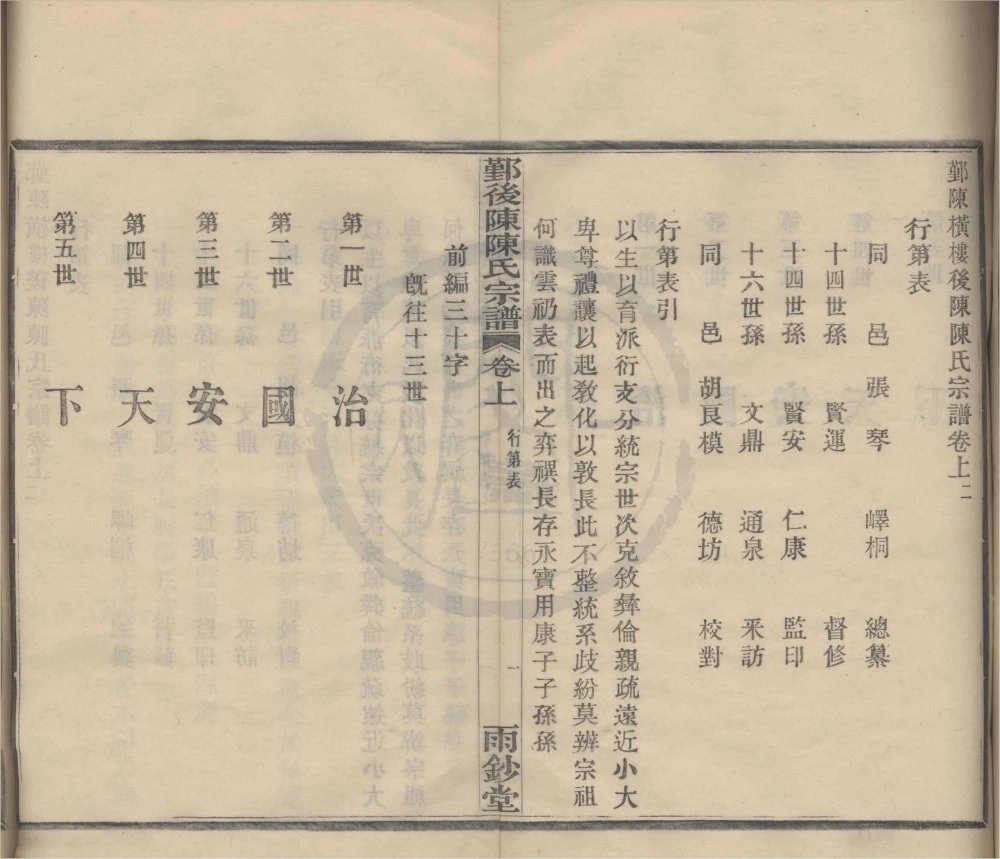 鄞陳橫樓後陳陳氏宗譜卷上二
行第表
同邑 張琴 嶧桐 總纂
十四世孫 賢運 督修
十四世孫 賢安 仁康 監印
十六世孫 文鼎 通泉 采訪
同邑 胡良模 德坊 校對
行第表引
以生以育派衍支分統宗世次克敘彝倫親疏遠近小大
卑尊禮讓以起敎化以敦長此不整統系歧紛莫辨宗祖
何識雲礽表而出之弈禩長存永寶用康子子孫孫
鄞後陳陳氏宗譜 卷上 行第表 一 雨鈔堂
前編三十字
旣往十三世
第一世 治
第二世 國
第三世 安
第四世 天
第五世 下